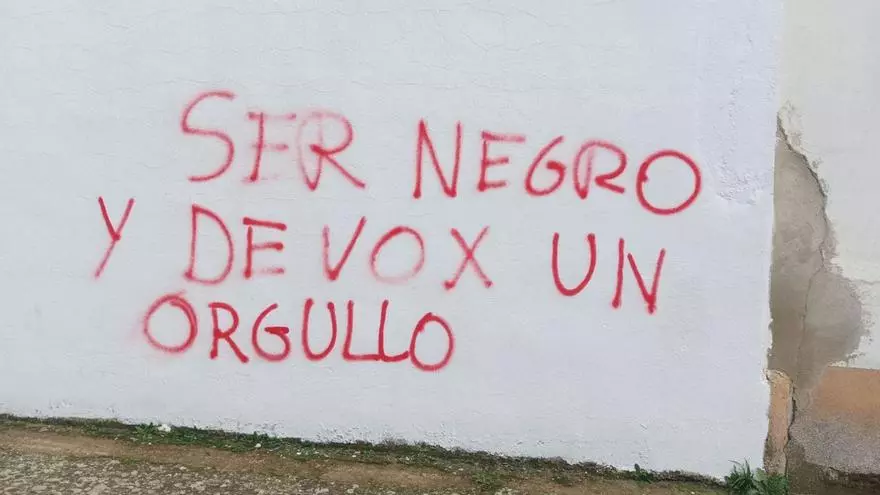 SER NEGRO
Y DE VOX UN
ORGULLO